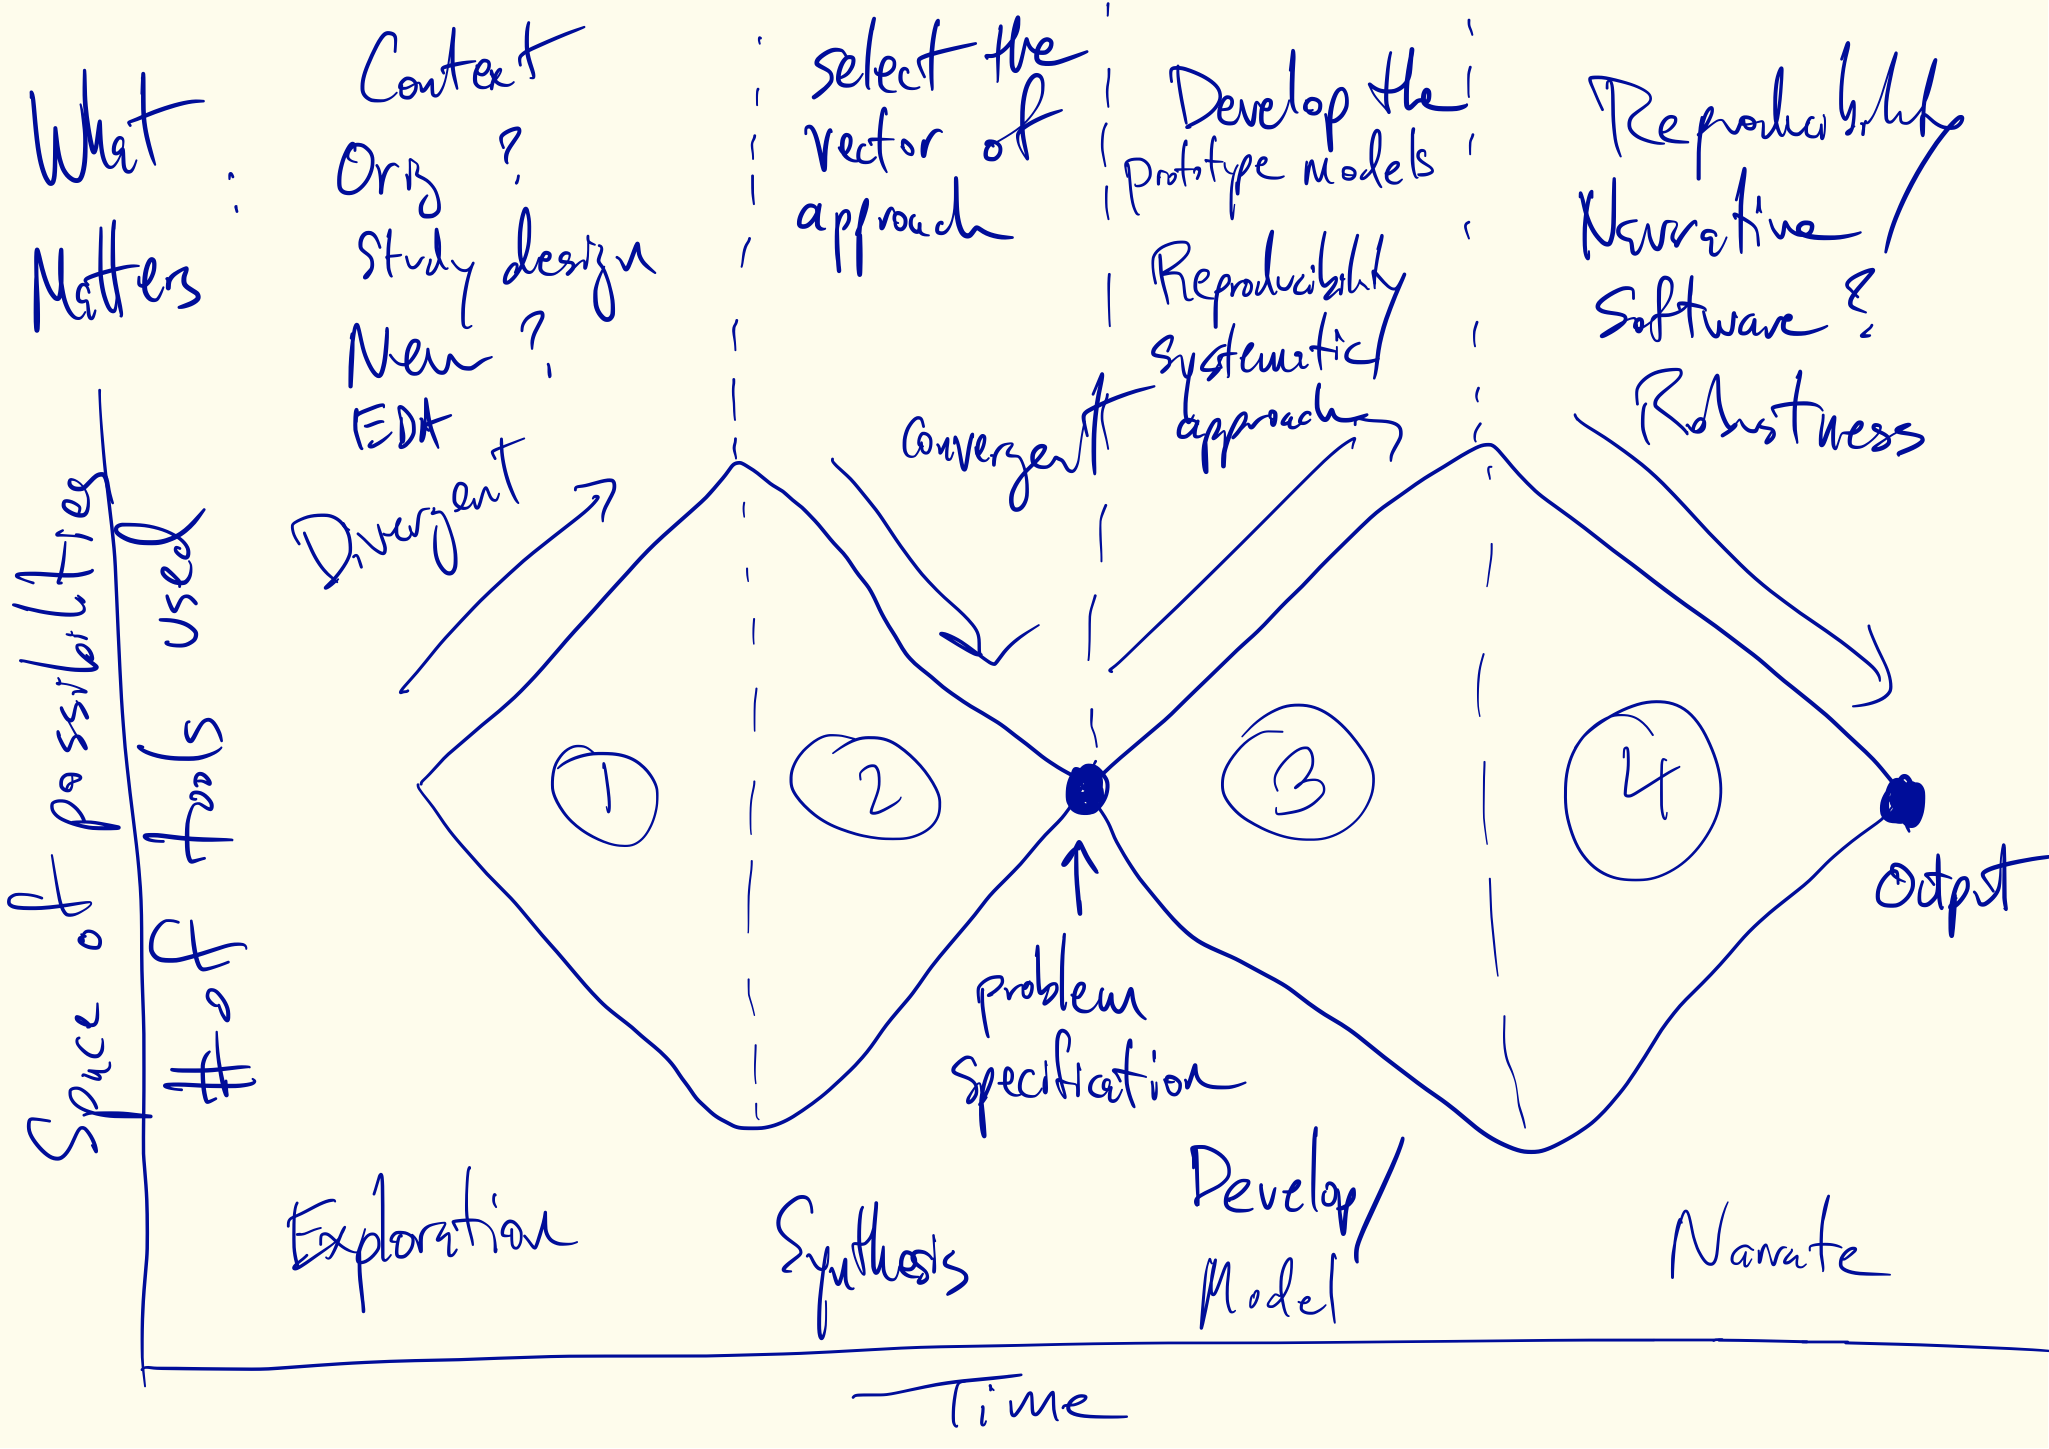 What
Matters :
Context
Orig ?
Study design
New ?
EDA
select the
vector of
approach
Develop the
prototype models
Reproducibility/
systematic/
approach
Reproducibility/
Narrative
Software ?
Robustness
Divergent
Convergent
Space of possibilities
# of tools used
1
2
3
4
problem
specification
Output
Exploration
Synthesis
Develop/
Model
Narrate
Time